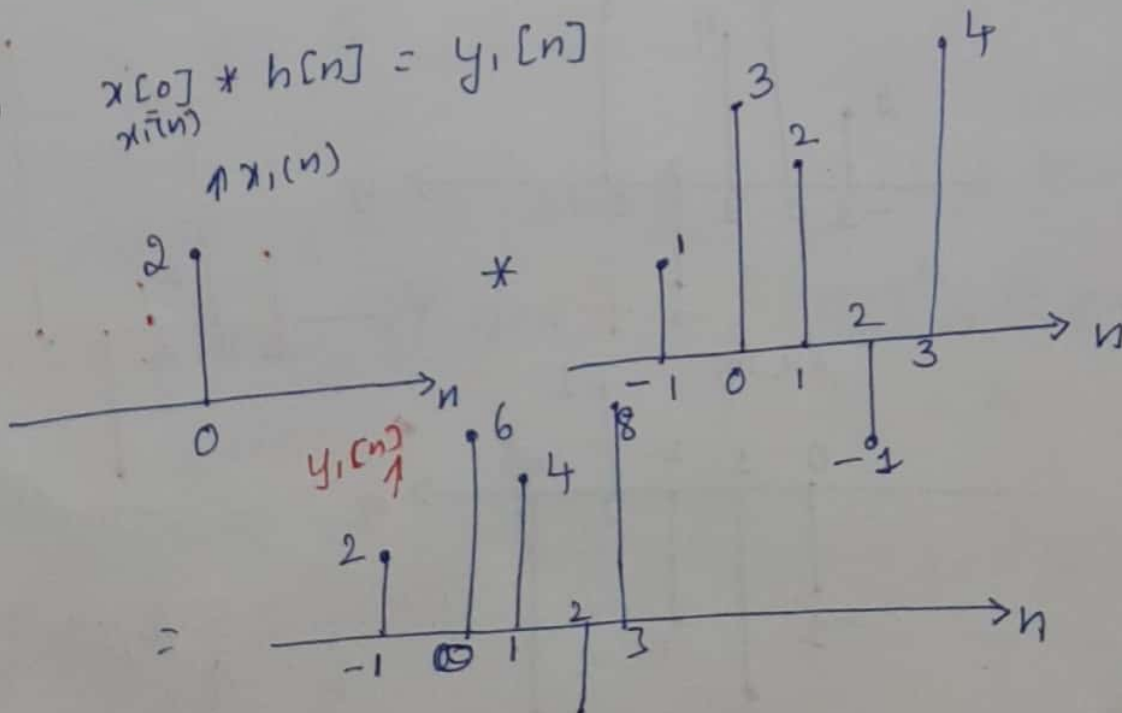 x[0] * h[n] = y₁[n]
x₁(n)
↑ x₁(n)
2
0
n
*
1
3
2
2
4
-1 0 1
3
n
-1
y₁[n] ↑
2
6
4
8
=
-1 0 1
2
3
n